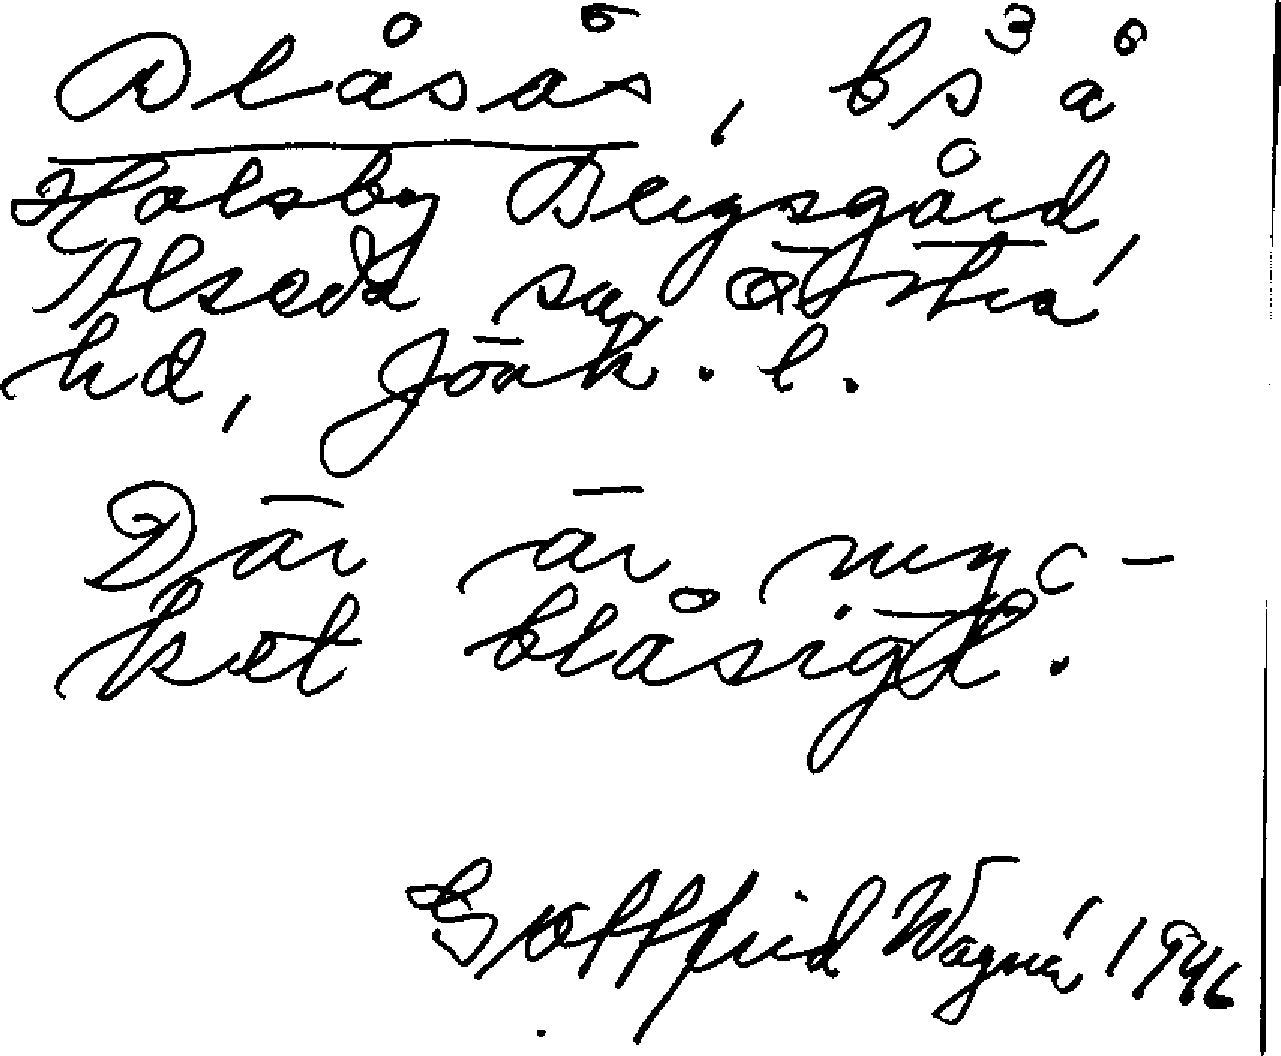 Blåsås, bs å
Holsby Bergsgård,
Alseda sn Östra
hd, Jönk. l.
Där är myc-
ket blåsigt.
Gottfrid Wagnér 1946